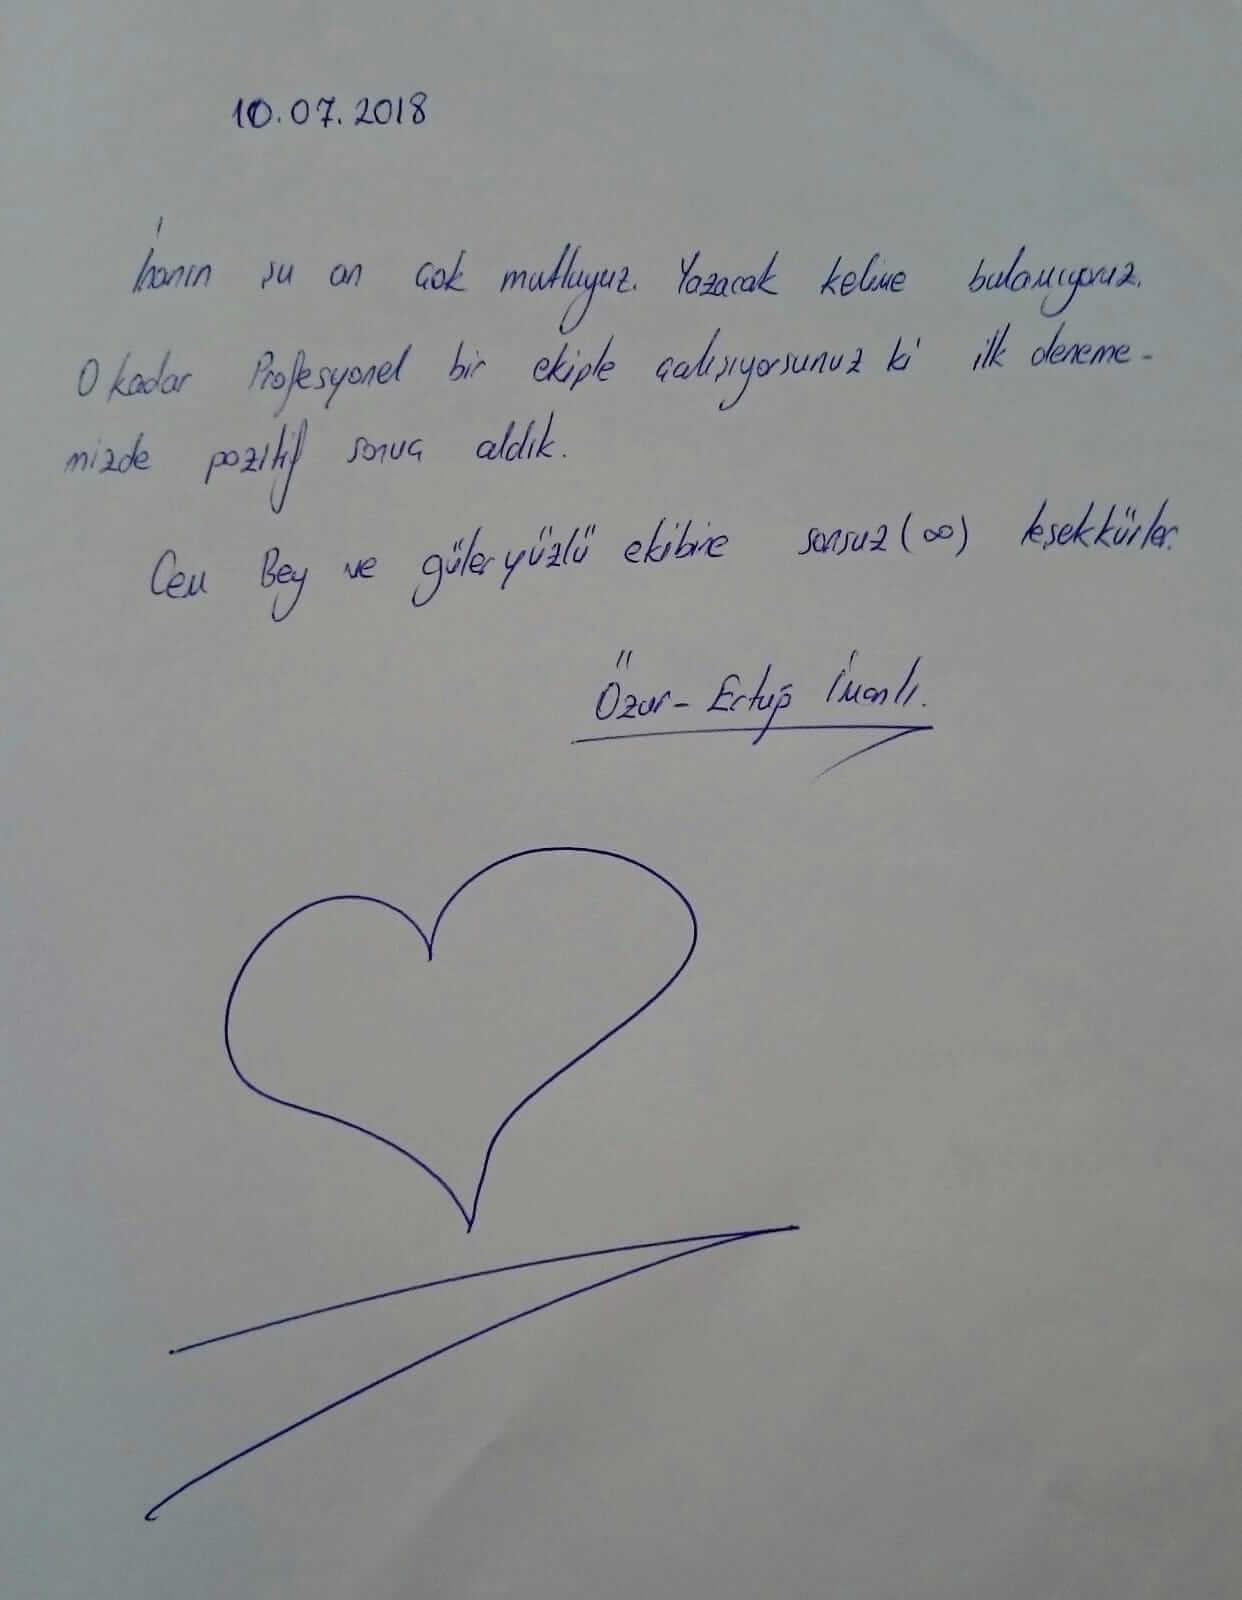 10.07.2018
İnanın şu an çok mutluyuz. Yazacak kelime bulamıyoruz.
O kadar Profesyonel bir ekiple çalışıyorsunuz ki ilk deneme-
mizde pozitif sonuç aldık.
Cem Bey ve güleryüzlü ekibine sonsuz (∞) teşekkürler.
Öznur - Ertuğ İmanlı.